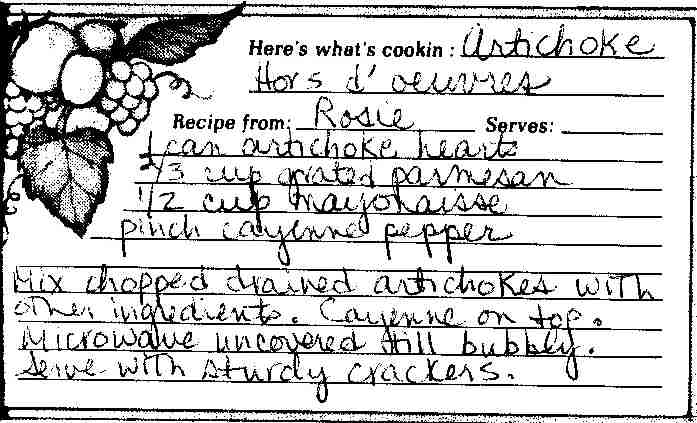 Here's what's cookin: Artichoke
Hors d'oeuvres
Recipe from: Rosie Serves:
1 can artichoke hearts
2/3 cup grated parmesan
1/2 cup mayonaisse
pinch cayenne pepper
Mix chopped drained artichokes with
other ingredients. Cayenne on top.
Microwave uncovered till bubbly.
Serve with sturdy crackers.